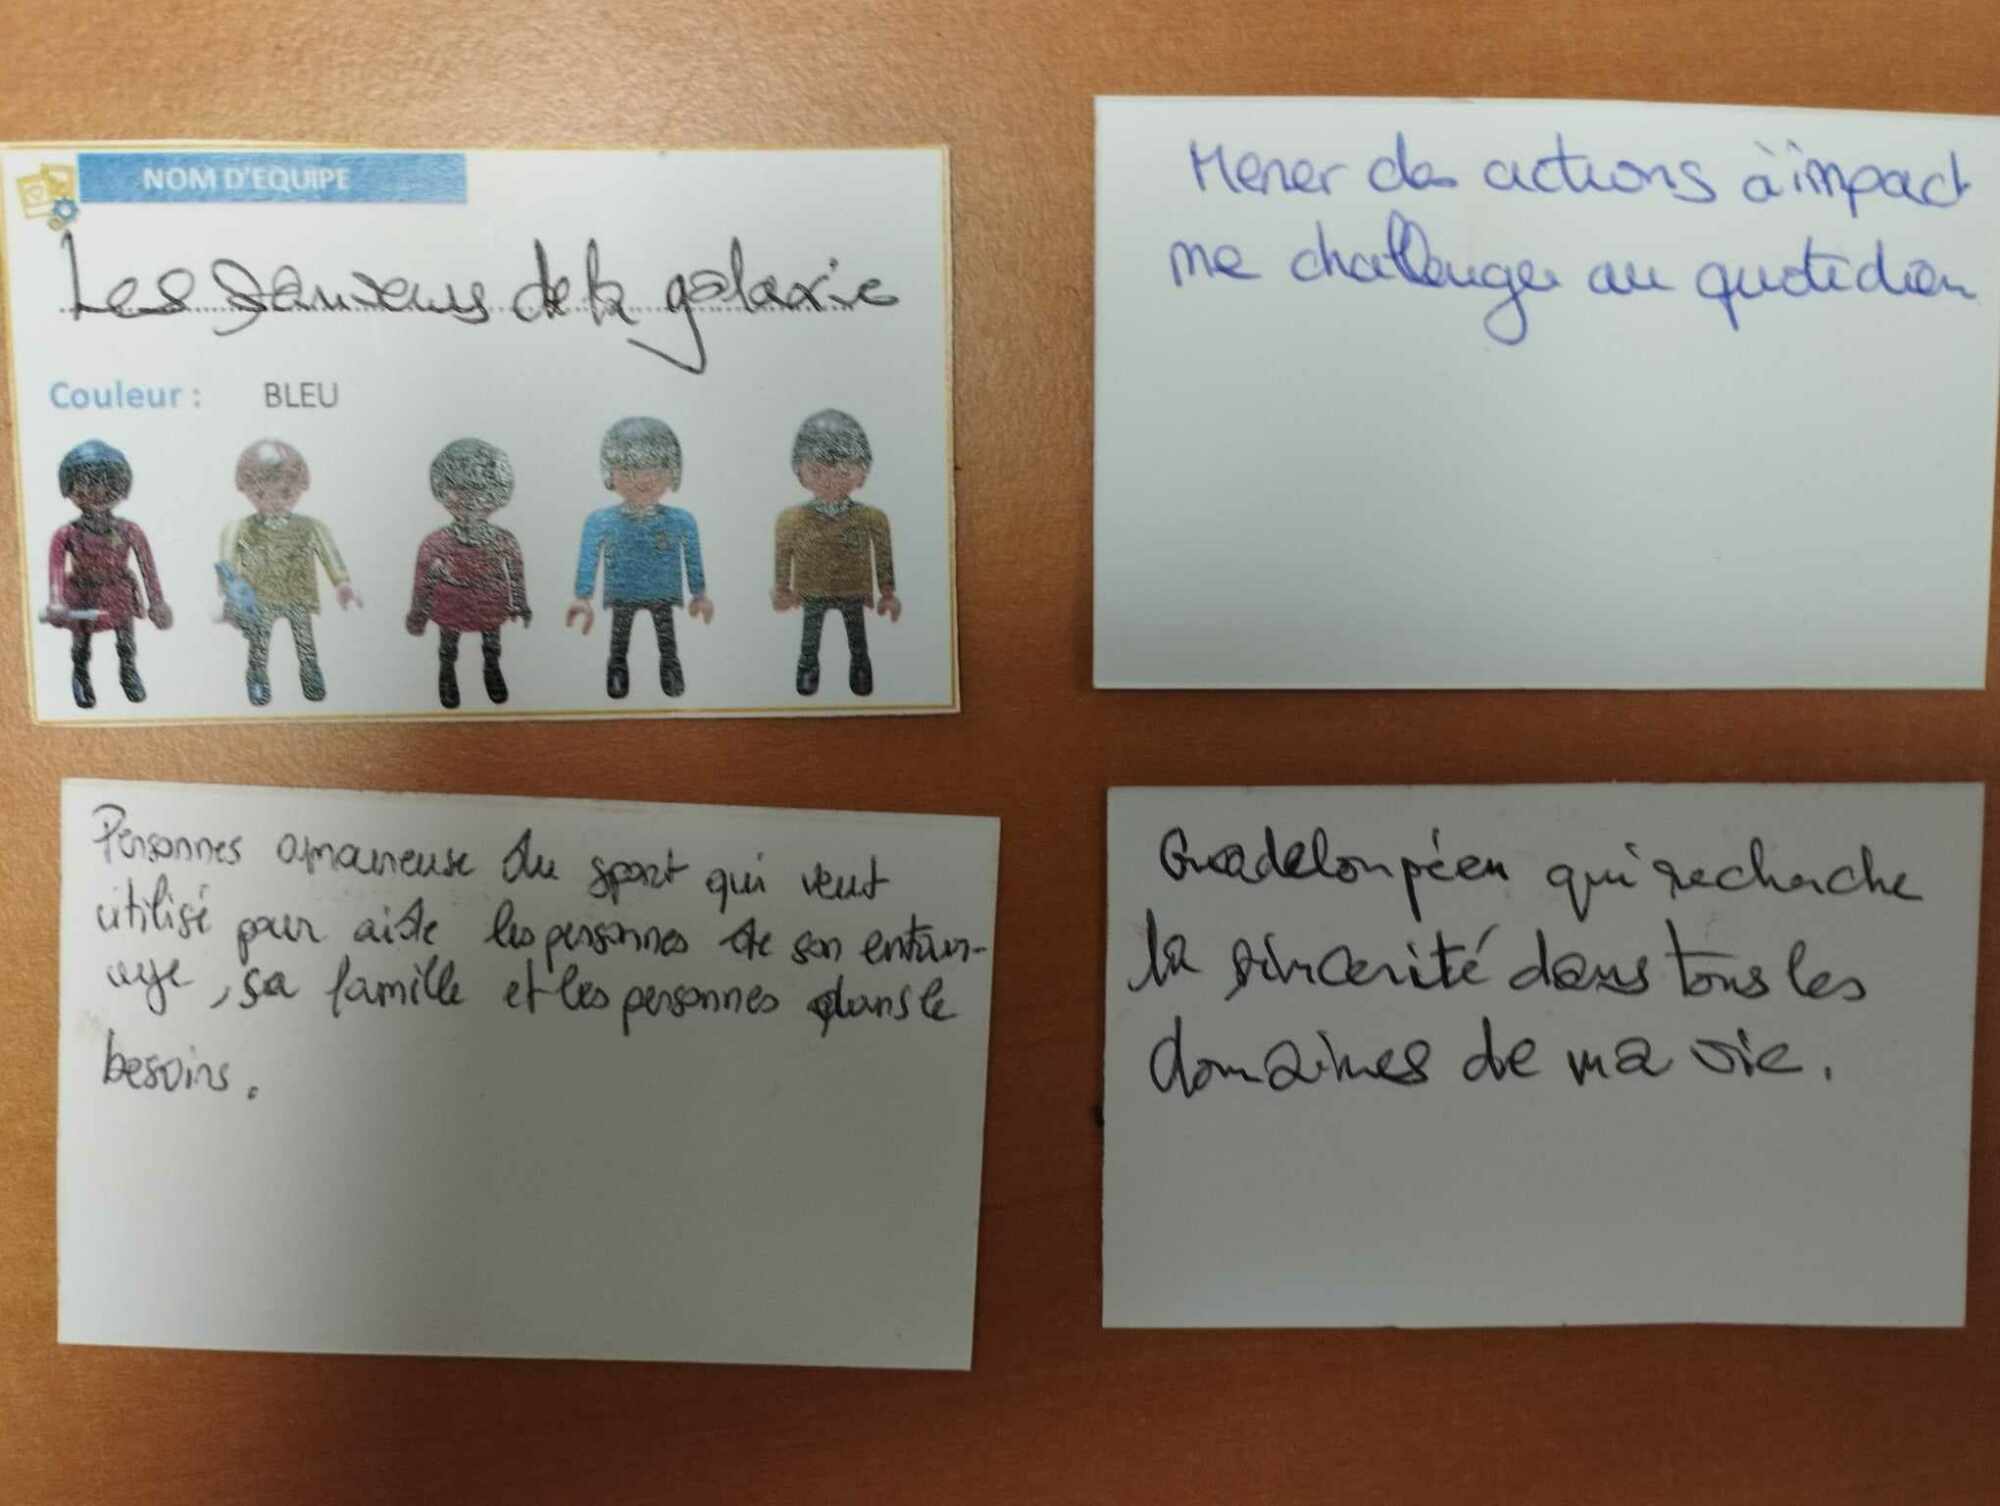 NOM D'EQUIPE
Les sauveurs de la galaxie
Couleur : BLEU
Mener des actions à impact
me challenger au quotidien
Personnes amoureuse du sport qui veut
utilisé pour aide les personnes de son entour-
age, sa famille et les personnes dans le
besoins.
Guadeloupéen qui recherche
la sincerité dans tous les
domaines de ma vie.